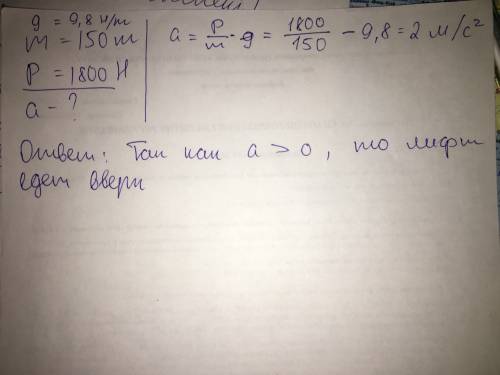 g = 9,8 н/m
m = 150 m
P = 1800 H
a - ?
a = P/m - g = 1800/150 - 9,8 = 2 м/с²
Ответ: Так как a > 0, то лифт
едет вверх